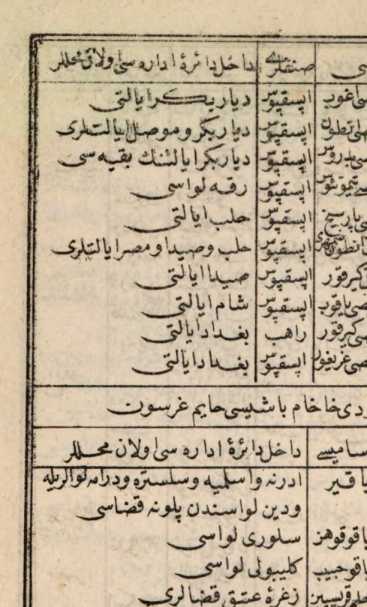 صنفلری داخل دائرهٔ اداره سی اولان محللر
اپسقپوس دیاربکر ایالتی
اپسقپوس دیاربکر و موصل ایالتلری
اپسقپوس دیاربکر ایالتنك بقیه سی
اپسقپوس رقه لواسی
اپسقپوس حلب ایالتی
اپسقپوس حلب وصیدا ومصر ایالتلری
اپسقپوس صیدا ایالتی
اپسقپوس شام ایالتی
راهب بغداد ایالتی
اپسقپوس بغداد ایالتی
خاخام باشیسی حایم غرسون
داخل دائرهٔ اداره سی اولان محللر
ادرنه واسلمیه وسلستره ودرامه لوالریله
ودین لواسندن پلونه قضاسی
سلوری لواسی
یاقوجیب کلیبولی لواسی
زغرهٔ عتیق قضالری